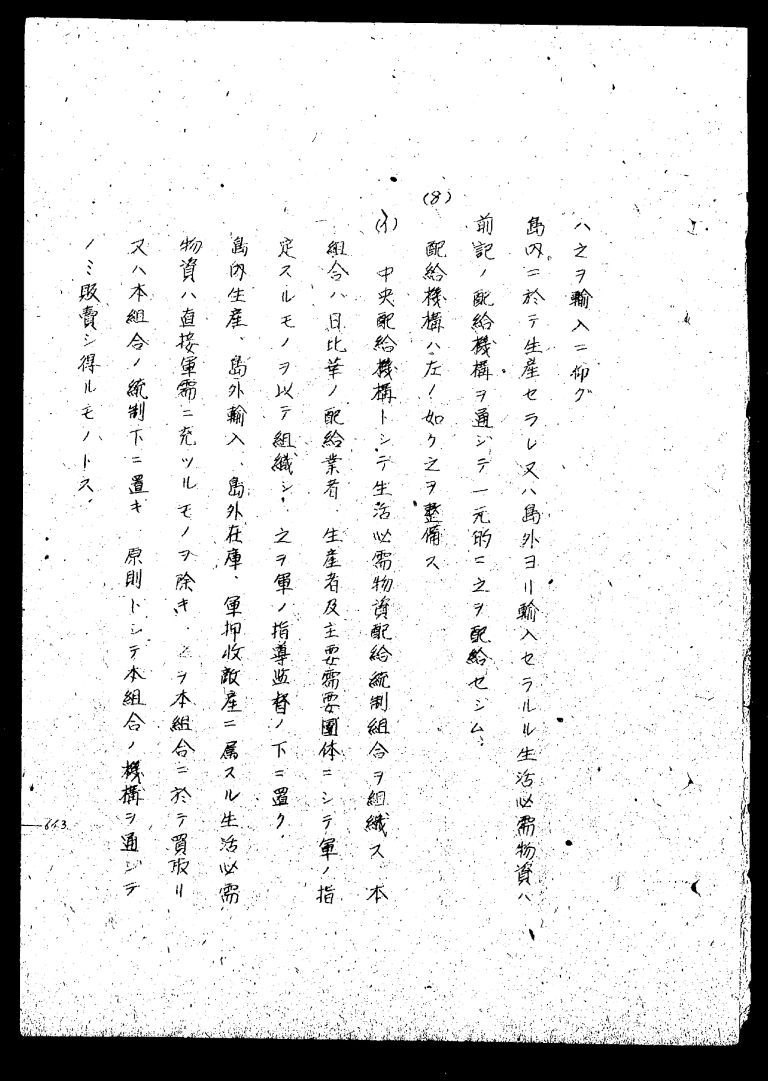 ハ之ヲ輸入ニ仰グ
島内ニ於テ生産セラレ又ハ島外ヨリ輸入セラルル生活必需物資ハ
前記ノ配給機構ヲ通ジテ一元的ニ之ヲ配給セシム、
(8) 配給機構ハ左ノ如ク之ヲ整備ス
(イ) 中央配給機構トシテ生活必需物資配給統制組合ヲ組織ス 本
組合ハ日比華ノ配給業者、生産者及主要需要團体ニシテ軍ノ指
定スルモノヲ以テ組織シ、之ヲ軍ノ指導監督ノ下ニ置ク、
島内生産、島外輸入、島外在庫、軍押收敵産ニ属スル生活必需
物資ハ直接軍需ニ充ツルモノヲ除キ、之ヲ本組合ニ於テ買取リ
又ハ本組合ノ統制下ニ置キ 原則トシテ本組合ノ機構ヲ通ジテ
ノミ販賣シ得ルモノトス、
643